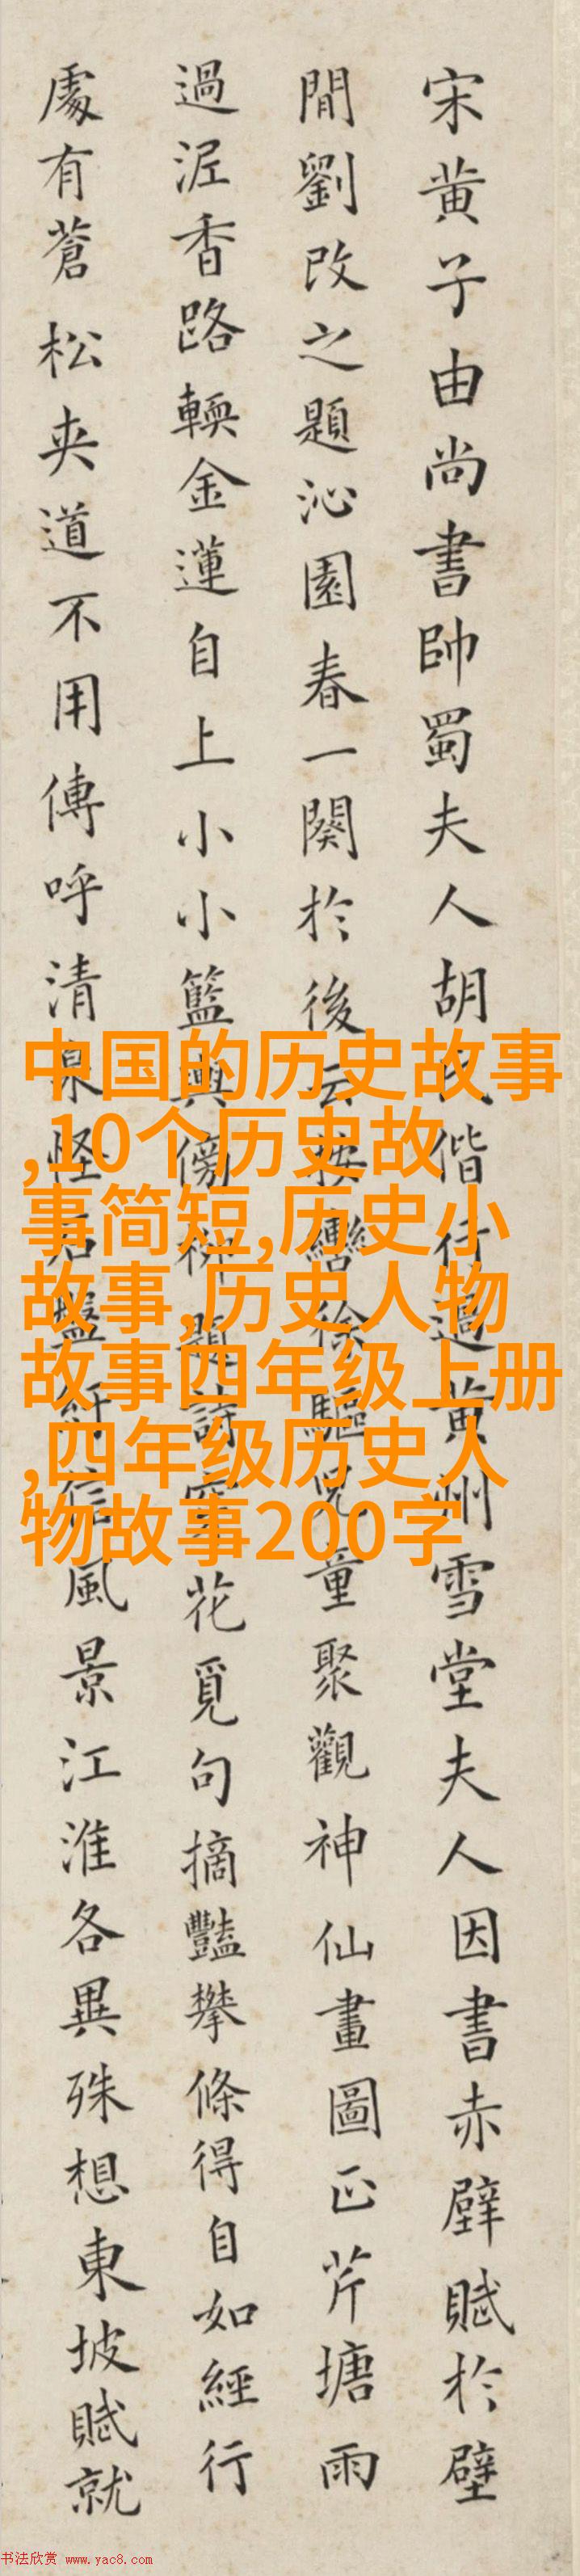 宋黄子由尚書帥蜀夫人胡氏偕行過黄州雪堂夫人因書赤壁賦於壁
間劉改之題沁園春一闋於後云按轡徐驅兒童聚觀神仙畫圖正芹塘雨
過泥香路輭金蓮自上小小籃輿傍柳題詩穿花覓句摘豔攀條得自如經行
處有蒼松夾道不用傳呼清泉怪石盤紆信風景江淮各異殊想東坡賦就
中国的历史故事
,10个历史故
事简短,历史小
故事,历史人物
故事四年级上册
,四年级历史人
物故事200字
书法欣赏 www.yac8.com